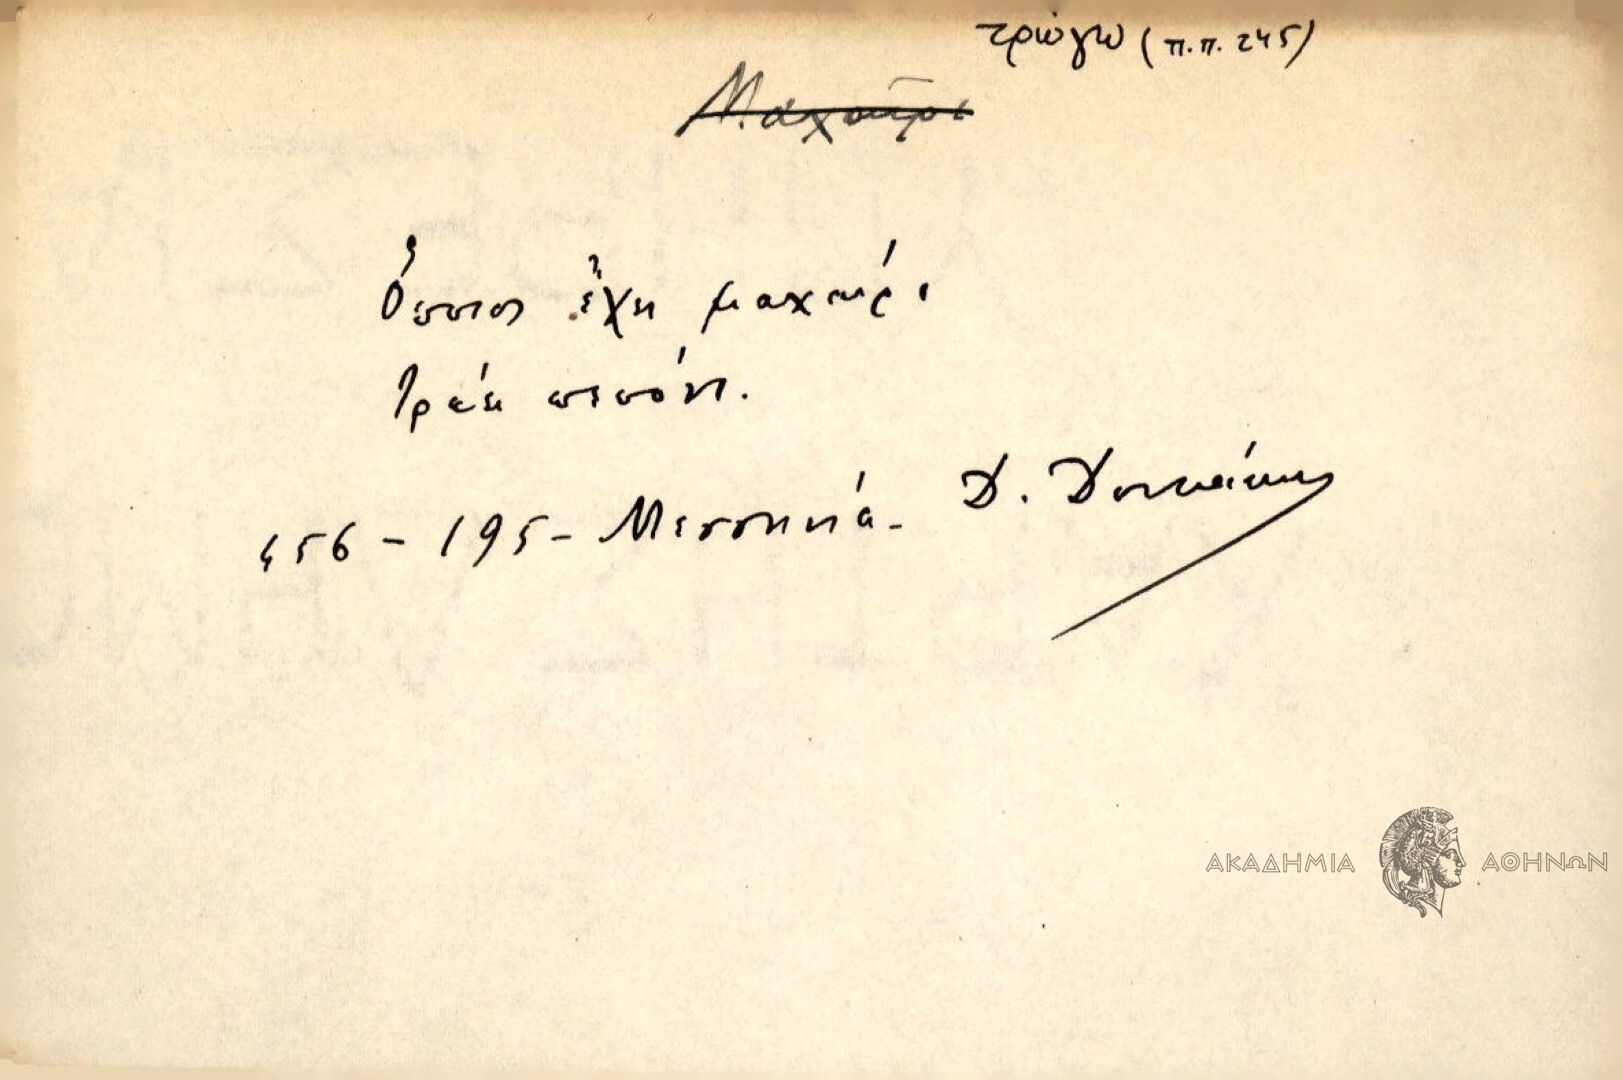 τρώγω (π.π. 245)
Μαχαῖρι
Ὅποιος ἔχη μαχαίρι
Τρώει πεπόνι.
456 - 195 - Μεσσηνία - Δ. Δουκάκης
ΑΚΑΔΗΜΙΑ ΑΘΗΝΩΝ